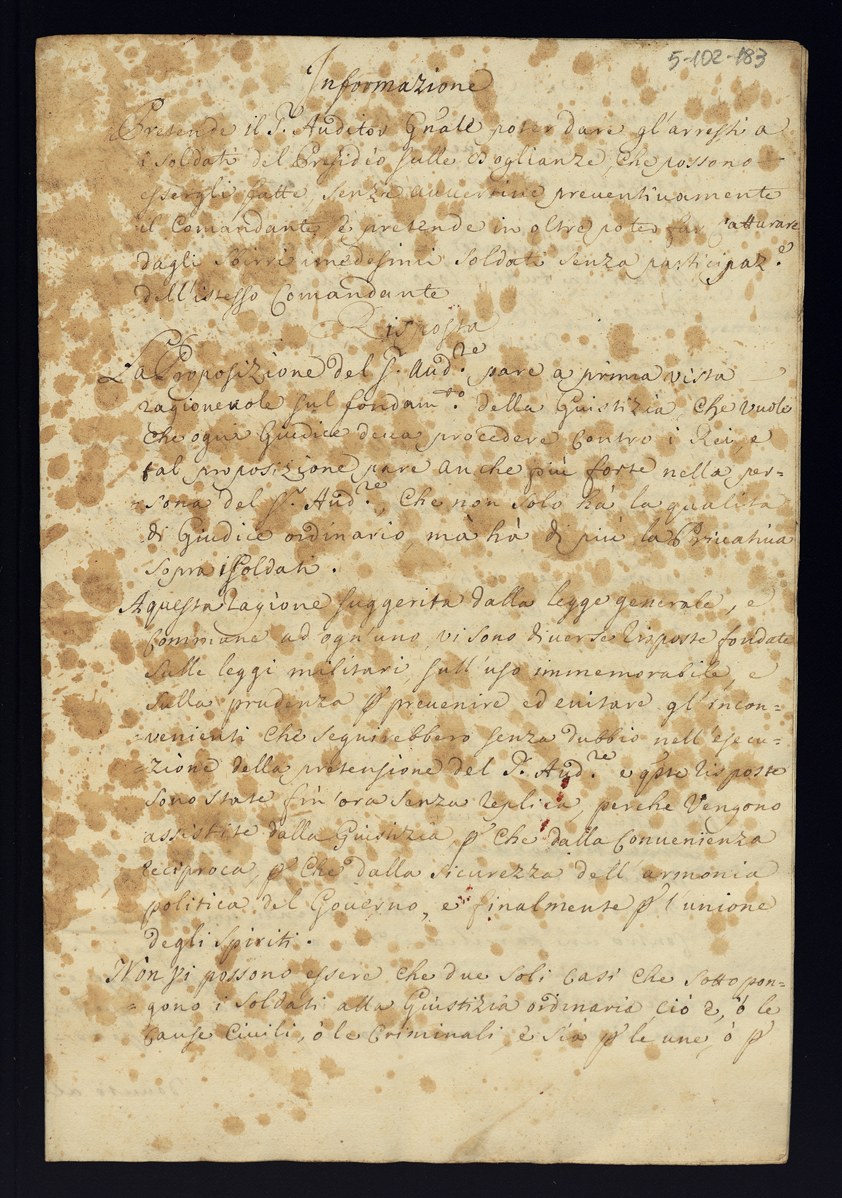 5-102-183
Informazione
Pretende il Sr. Auditor Gnale poter dare gl'arresti a
i soldati del Presidio sulle doglianze, che possono
essergli fatte, senza avvertire preventivamente
il Comandante e pretende in oltre poter far catturare
dagli sbirri i medesimi soldati senza participaz.e
dell'istesso Comandante
Risposta
La Proposizione del Sr. Aud.re pare a prima vista
ragionevole sul fondam.to della Giustizia, che vuole
che ogni Giudice deva procedere contro i Rei, e
tal proposizione pare anche più forte nella per-
-sona del Sr. Aud.re, che non solo hà la qualità
di Giudice ordinario, mà hà di più la Privativa
sopra i Soldati.
A questa ragione suggerita dalla legge generale, e
commune ad ogn'uno, vi sono diverse risposte fondate
sulle leggi militari, sull'uso immemorabile, e
sulla prudenza p prevenire ed evitare gl'incon-
-venienti che seguirebbero senza dubbio nell'esecu-
-zione della pretensione del Sr. Aud.re e qste risposte
sono state fin'ora senza replica, perche vengono
assistite dalla Giustizia, p che dalla convenienza
reciproca, p che dalla sicurezza dell'armonia
politica del Governo, e finalmente p l'unione
degli spiriti.
Non vi possono essere che due soli casi che sottopon-
-gono i soldati alla Giustizia ordinaria, ciò è, ò le
cause Civili, ò le Criminali e sia p le une, ò p